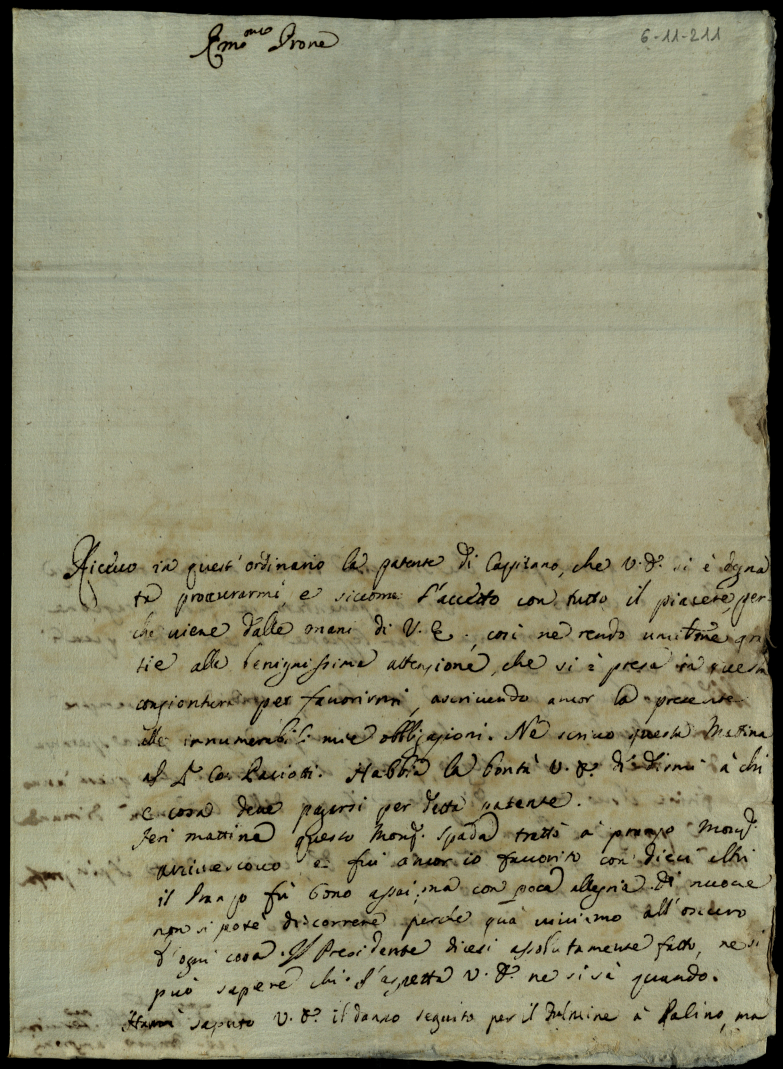 6-11-211
Emo mio Prone
Ricevo in quest'ordinario la patente di Cappitano, che V. E. si è degna
ta procurarmi, e siccome l'accetto con tutto il piacere, per
che viene dalle mani di V. E. così ne rendo umilme gra
tie alla benignissima attenzione, che si è presa in questa
congiontura per favorirmi, ascrivendo ancor la presente
alle innumerabili mie obbligazioni. Ne scrivo questa Mattina
al Co: Paciotti. Habbia la bontà V. E. di dirmi à chi
e cosa deve pagarsi per detta patente.
Jeri mattina questo Monsr. Spada trattò a pranzo Monsr.
arcivescovo e fui ancor io favorito con dieci altri
il pranzo fù bono assai, ma con poca allegria. Di nuove
non si potè discorrere perche quà viviamo all'oscuro
d'ogni cosa. Il Presidente dicesi assolutamente fatto, ne si
può sapere chi. S'aspetta V. E. ne si sà quando.
Havrà saputo V. E. il danno seguito per il fulmine à Palino, ma